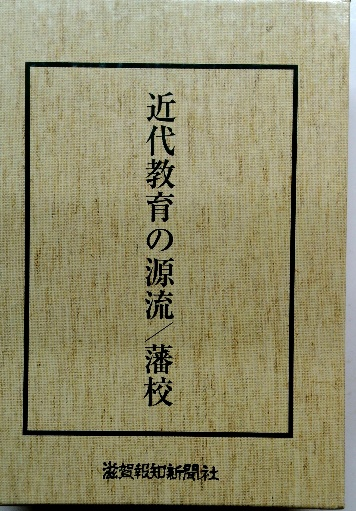 近代教育の源流／藩校
滋賀報知新聞社